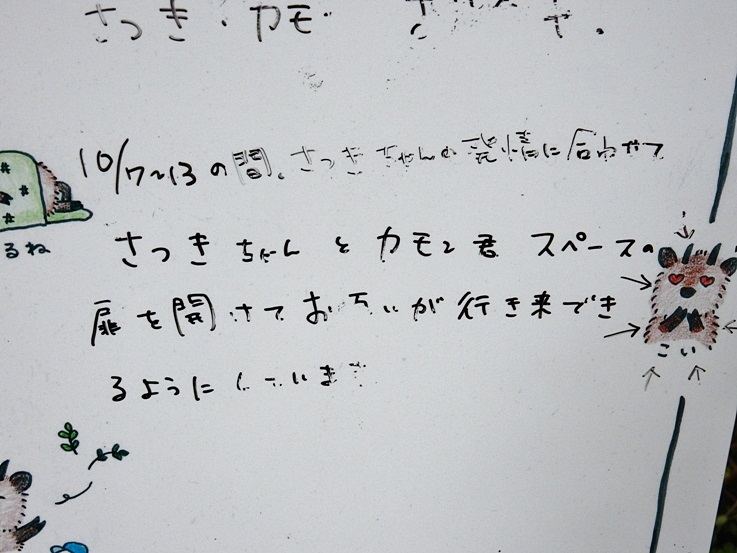 さつき・カモ
10/7~13の間、さつきちゃんの発情に合わせて
さつきちゃんとカモン君 スペースの
扉を開けてお互いが行き来でき
るようにしています
るね
こい